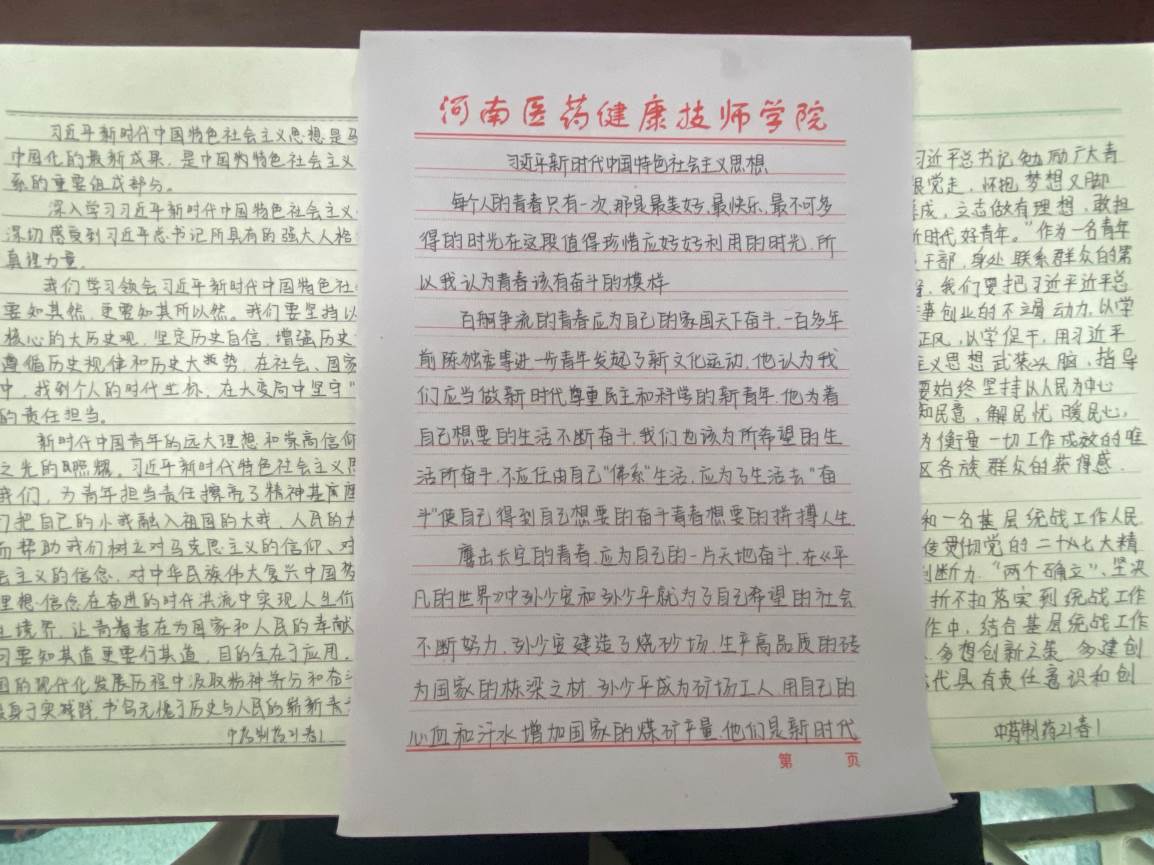 习近平新时代中国特色社会主义思想是马
中国化的最新成果，是中国特色社会主义
系的重要组成部分。
深入学习习近平新时代中国特色社会主义
深切感受到习近平总书记所具有的强大人格
真理力量。
我们学习领会习近平新时代中国特色社
要知其然，更要知其所以然。我们要坚持以
核心的大历史观，坚定历史自信，增强历史
遵循历史规律和历史大趋势，在社会、国家
中，找到个人的时代坐标，在大变局中坚守"
的责任担当。
新时代中国青年的远大理想和崇高信仰
之光的照耀。习近平新时代特色社会主义思
我们，为青年担当责任擦亮了精神基底
们把自己的小我融入祖国的大我，人民的大
而帮助我们树立对马克思主义的信仰、对
会主义的信念，对中华民族伟大复兴中国梦
理想信念在奋进的时代洪流中实现人生价
生境界，让青着者在为国家和人民的奉献
习要知其道更要行其道，目的全在于应用，
国的现代化发展历程中汲取精神养分和奋
身于实践，书写无愧于历史与人民的崭新
中药制药21春1
河南医药健康技师学院
习近平新时代中国特色社会主义思想
每个人的青春只有一次，那是最美好、最快乐，最不可多
得的时光在这段值得珍惜应好好利用的时光，所
以我认为青春该有奋斗的模样
百舸争流的青春应为自己的家国天下奋斗，一百多年
前陈独秀等进步青年发起了新文化运动，他认为我
们应当做新时代尊重民主和科学的新青年，他为着
自己想要的生活不断奋斗，我们也该为所希望的生
活所奋斗，不应任由自己"佛系"生活，应为了生活去"奋
斗"使自己得到自己想要的奋斗青春想要的拼搏人生
鹰击长空的青春，应为自己的一片天地奋斗，在《平
凡的世界》中孙少安和孙少平就为了自己希望的社会
不断努力，孙少安建造了烧砂场，生平高品质的砖
为国家的栋梁之材，孙少平成为矿场工人，用自己的
心血和汗水增加国家的煤矿产量，他们是新时代
第 页
习近平总书记勉励广大青
跟党走，怀抱梦想又脚
成，立志做有理想，敢担
新时代好青年。"作为一名青年
干部，身处联系群众的第
，我们要把习近平近平总
事创业的不竭动力，以学
正风，以学促干，用习近平
主义思想武装头脑，指导
要始终坚持以人民为中心
知民意，解民忧，暖民心，
为衡量一切工作成效的唯
区各族群众的获得感，
和一名基层统战工作人民
传贯彻党的二十大精
判断力，"两个确立"、坚决
折不扣落实到统战工作
作中，结合基层统战工作
，多想创新之策，多建创
代具有责任意识和创
中药制药21春1